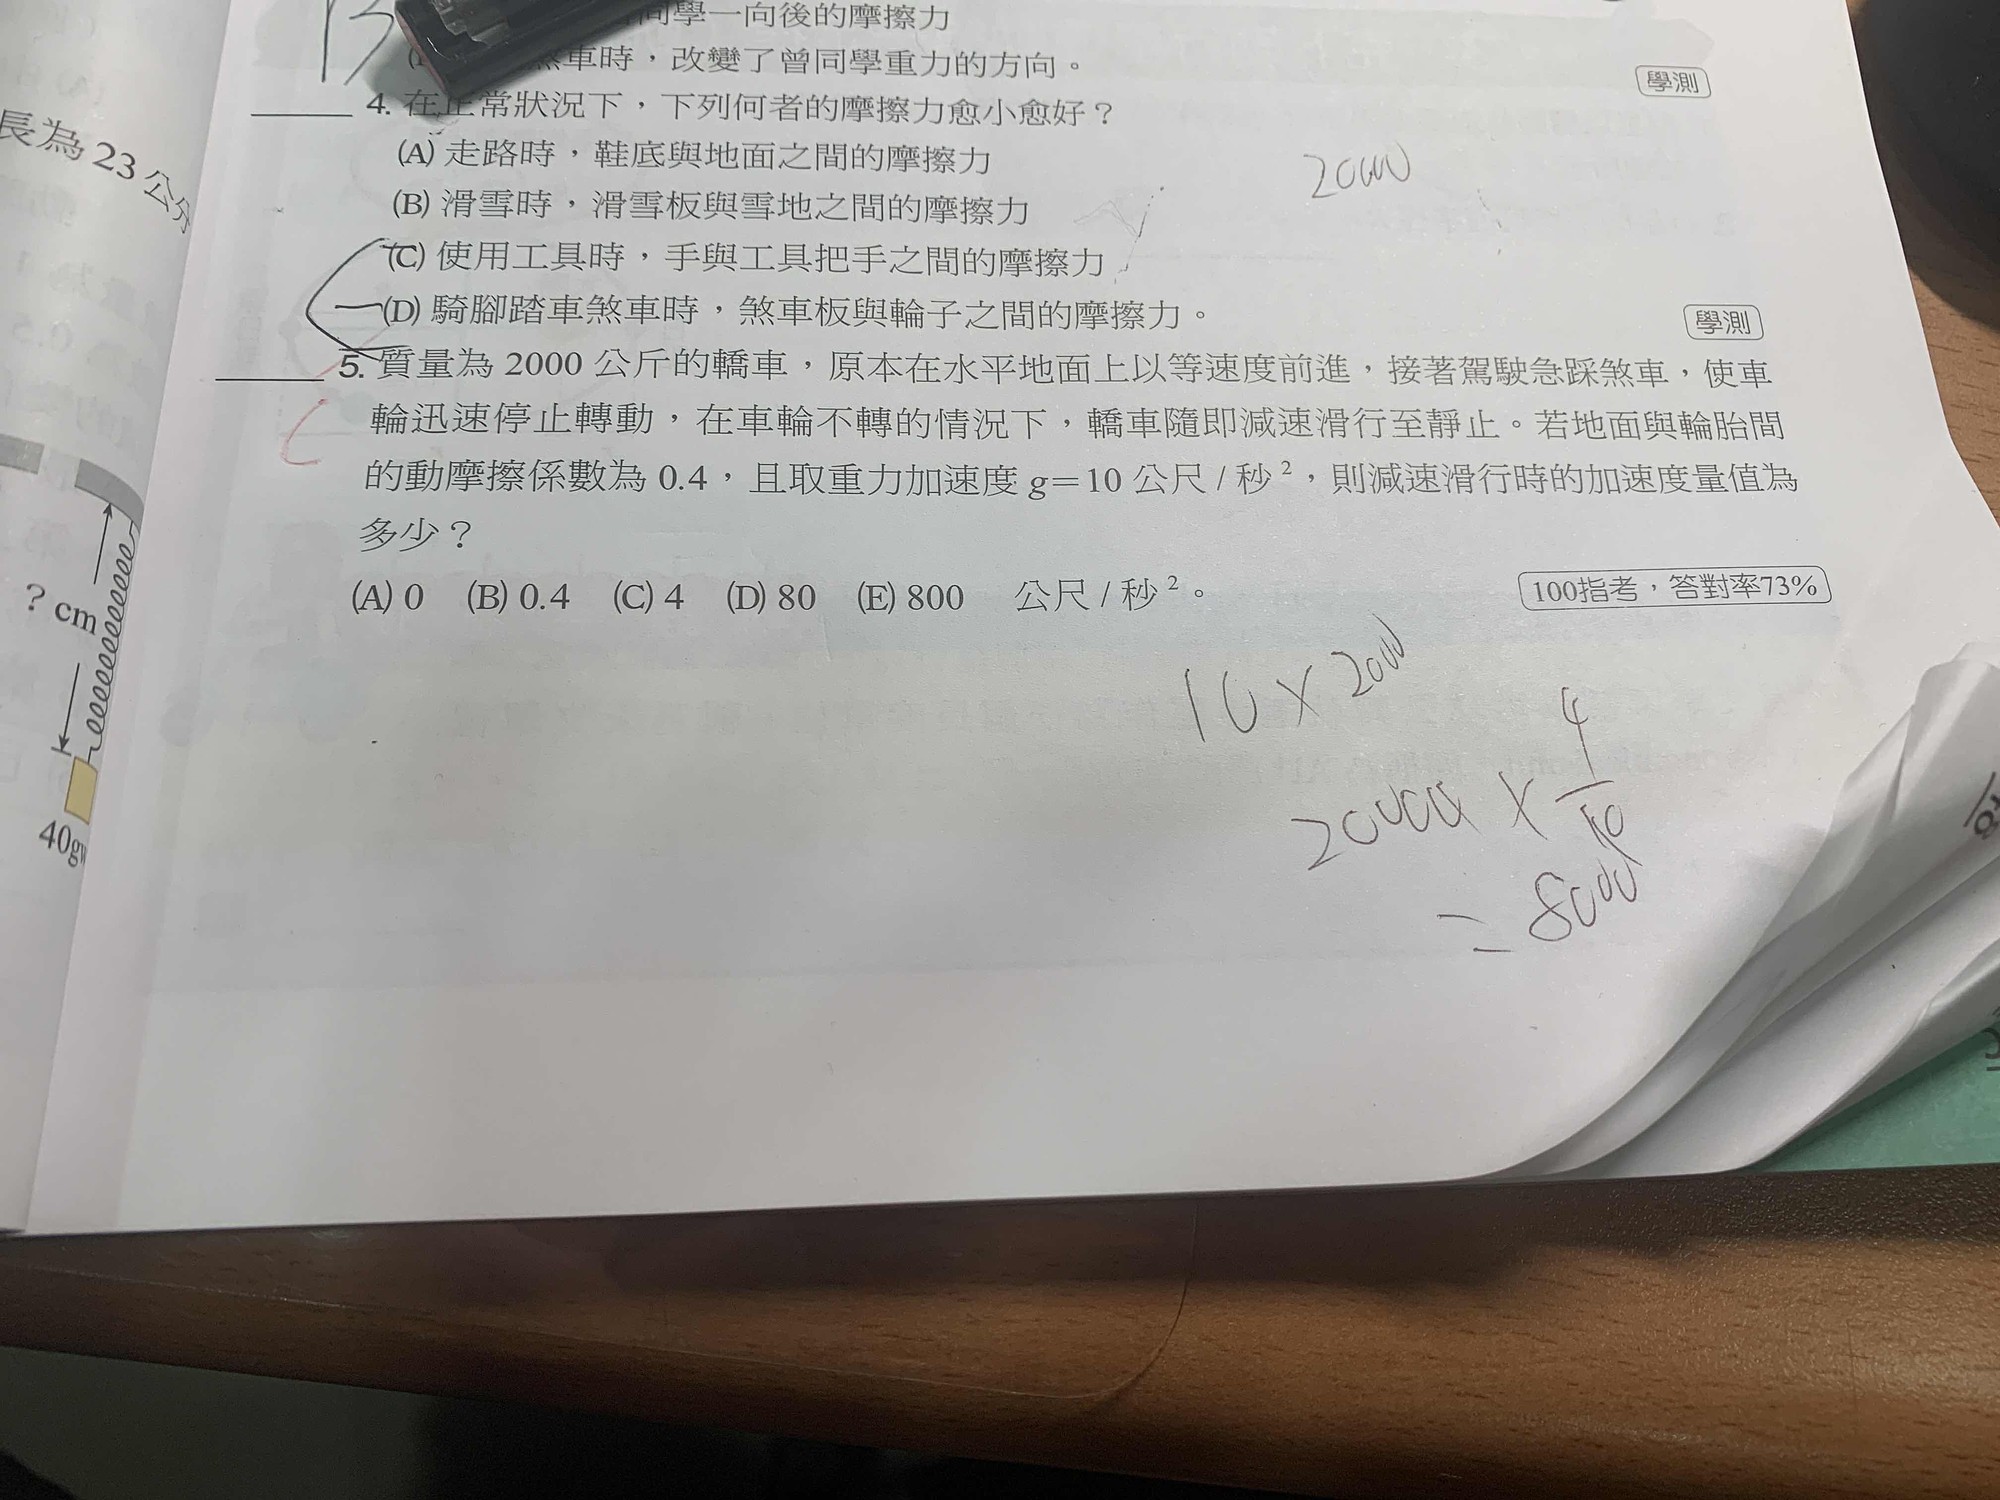 同學一向後的摩擦力
煞車時，改變了曾同學重力的方向。
學測
4. 在正常狀況下，下列何者的摩擦力愈小愈好？
(A) 走路時，鞋底與地面之間的摩擦力
2000
(B) 滑雪時，滑雪板與雪地之間的摩擦力
(C) 使用工具時，手與工具把手之間的摩擦力
(D) 騎腳踏車煞車時，煞車板與輪子之間的摩擦力。
學測
5. 質量為 2000 公斤的轎車，原本在水平地面上以等速度前進，接著駕駛急踩煞車，使車
輪迅速停止轉動，在車輪不轉的情況下，轎車隨即減速滑行至靜止。若地面與輪胎間
的動摩擦係數為 0.4，且取重力加速度 g=10 公尺/秒²，則減速滑行時的加速度量值為
多少？
(A) 0 (B) 0.4 (C) 4 (D) 80 (E) 800 公尺/秒²。
100指考，答對率73%
C
10 × 2000
20000 × 4/10
= 8000
長為 23 公分
? cm
40g